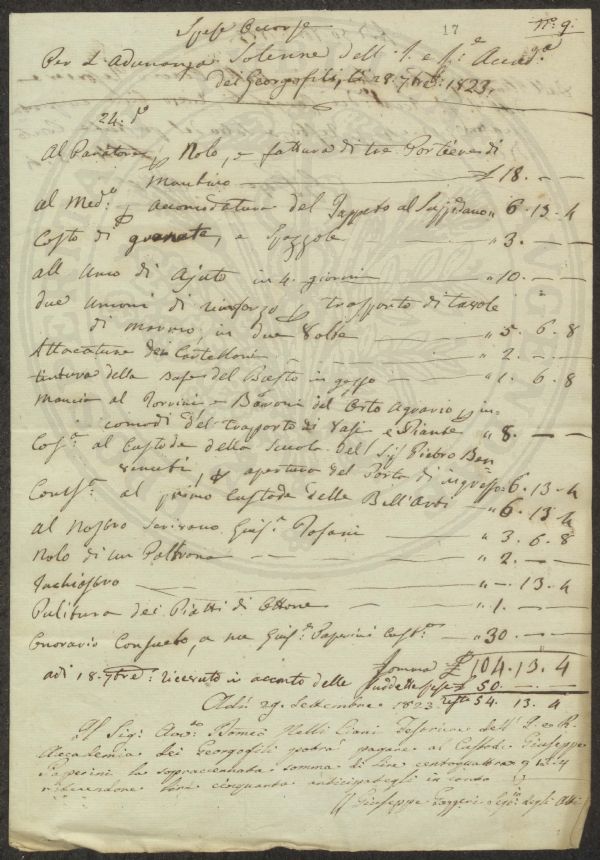 17
nº. 9.
Spese Occorse
Per l'Adunanza Solenne dell' I. e R.e Accad.a
dei Georgofili, li 28. 7bre: 1823.
24. d.o
Al Paratore p nolo, e fattura di tre Portiere di
£ 18. — —
al Med.o p accomodatura del Tappeto al Suppedaneo " 6. 13. 4
Costo di granate, e spazzole " 3. — —
all Uomo di Ajuto in 4. giorni " 10. — —
due Uomini di rinforzo p trasporto di tavole
di marmo, in due Volte " 5. 6. 8
Attaccature dei Cartelloni " 2. — —
tintura della base del Busto in gesso " 1. 6. 8
Mancia ai e del Orto Agrario p in-
comodi del trasporto di Vasi e Piante " 8. — —
al Custode della Scuola del Sig: Pietro Ben-
venuti, p apertura del Porta di ingresso " 6. 13. 4
al primo Custode delle Bell'Arti " 6. 13. 4
al Nostro Scrivano Gius.e Tofani " 3. 6. 8
Nolo di un Poltrona " 2. — —
Inchiostro " —. 13. 4
Pulitura dei Piatti di Ottone " 1. — —
Onorario Consueto, a me Gius.e Paperini Cust.e " 30. — —
Somma £ 104. 13. 4
adi 18. 7bre: ricevuto in acconto delle suddette spese £ 50. — —
resta 54. 13. 4
Adi 29. Settembre 1823
Il Sig: Avv.to Tesoriere dell' I. e R.
Accademia dei Georgofili potrà pagare al Custode Giuseppe
Paperini la sopraccennata somma di Lire centoquattro, 13. 4
ritenendone lire cinquanta anticipategli in conto
Giuseppe Gazzeri Seg.rio degli Atti